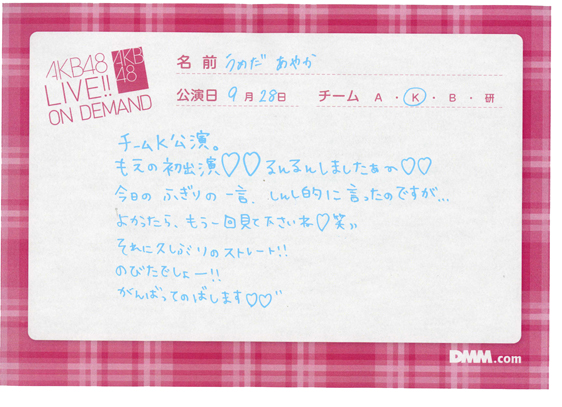 AKB48
LIVE!!
ON DEMAND
AKB
48
名前 うめだ あやか
公演日 9月28日 チーム A・K・B・研
チームK公演。
もえの初出演♡♡るんるんしましたぁー♡♡
今日の ふぎりの一言、しんし的に言ったのですが...
よかったら、もう一回見て下さいね♡笑"
それに久しぶりのストレート!!
のびたでしょー!!
がんばってのばします♡♡"
DMM.com